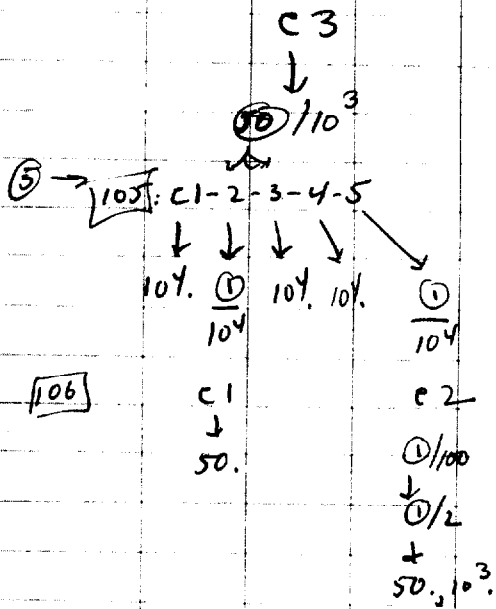 c 3
↓
50 / 10³
③ → 105: c1-2-3-4-5
↓ ↓ ↓ ↘ ↘
10⁴. ①/10⁴ 10⁴. 10⁴. ①/10⁴
106 c1 c2
↓ ①/100
50. ↓
①/2
↓
50., 10³.